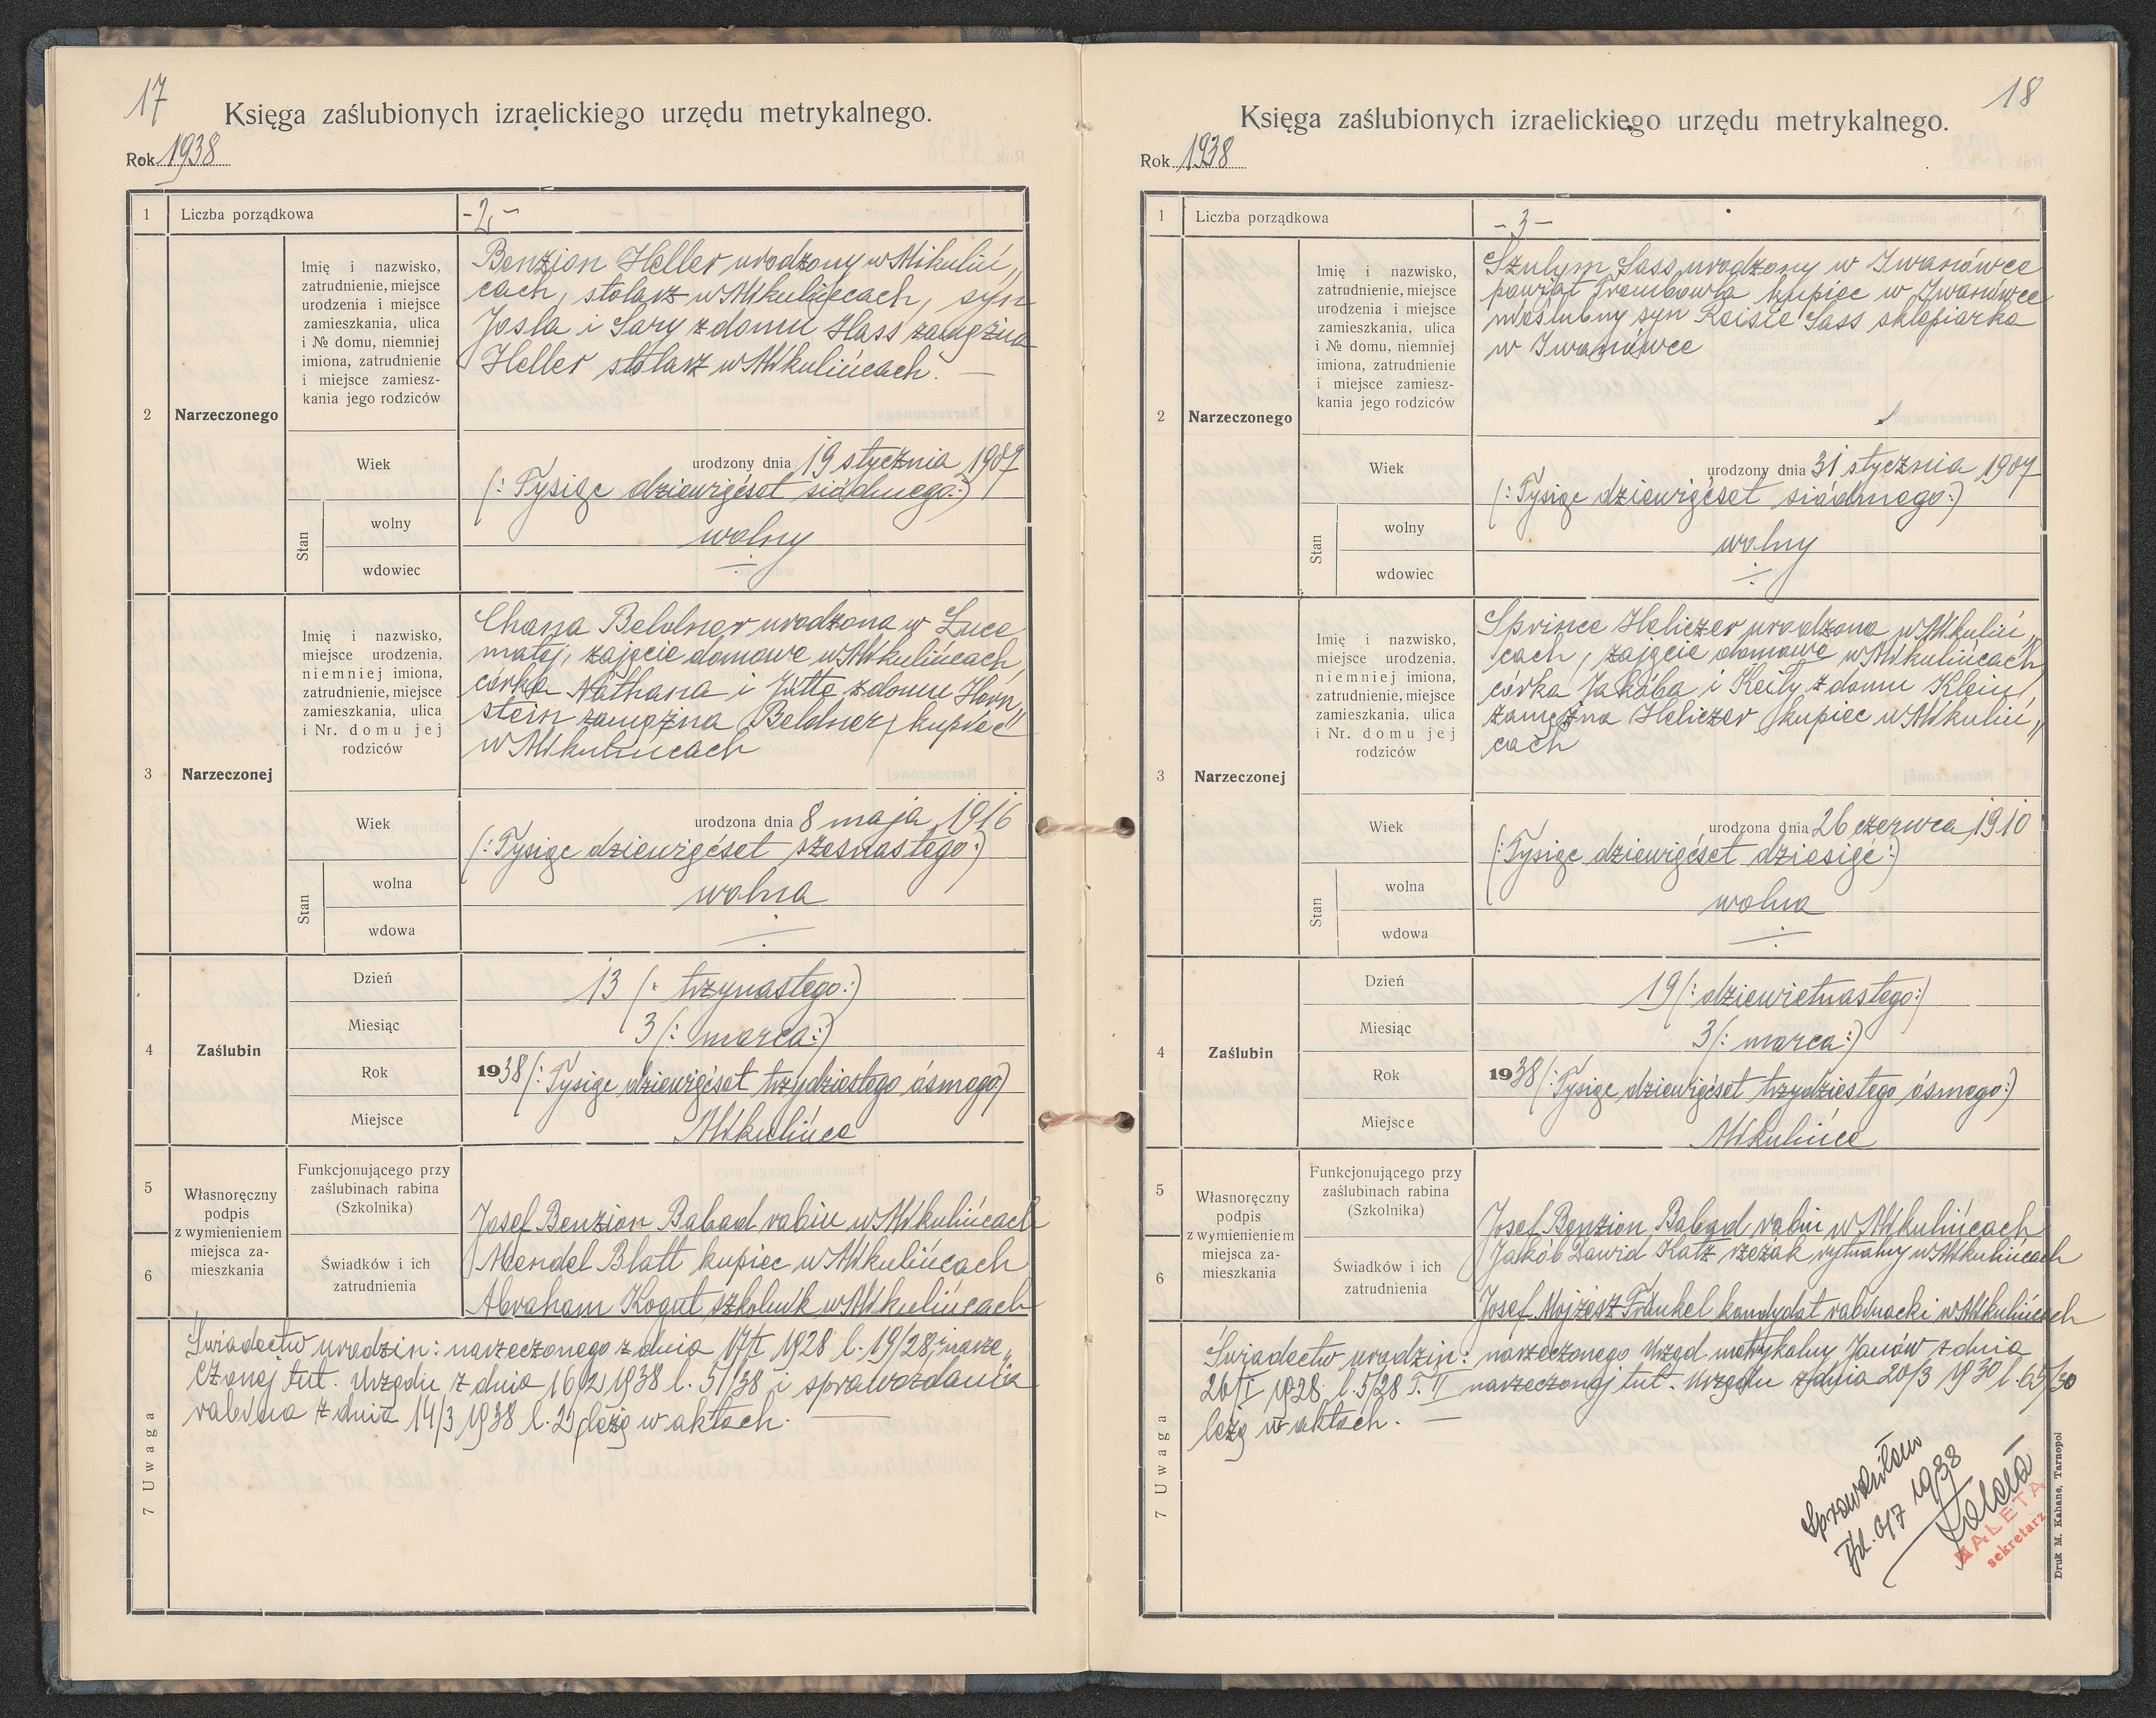 17
Księga zaślubionych izraelickiego urzędu metrykalnego.
Rok 1938
1 Liczba porządkowa -2,-
2 Narzeczonego
Imię i nazwisko,
zatrudnienie, miejsce
urodzenia i miejsce
zamieszkania, ulica
i № domu, niemniej
imiona, zatrudnienie
i miejsce zamiesz-
kania jego rodziców
Benzion Heller urodzony w Mikuliń„
cach, stolarz w Mikulińcach, syn
Josla i Sary z domu Hass zamężna
Heller stolarz w Mikulińcach. —
Wiek
urodzony dnia 19 stycznia 1907
(: Tysiąc dziewięćset siódmego:)
Stan
wolny
wolny
wdowiec
3 Narzeczonej
Imię i nazwisko,
miejsce urodzenia,
niemniej imiona,
zatrudnienie, miejsce
zamieszkania, ulica
i Nr. domu jej
rodziców
Chana Beldner urodzona w Łuce
małej, zajęcie domowe w Mikulińcach,
córka Nathana i Jütte z domu Horn„
stein zamężna Beldner, kupiec
w Mikulińcach
Wiek
urodzona dnia 8 maja 1916
(: Tysiąc dziewięćset szesnastego:)
Stan
wolna
wolna
wdowa
4 Zaślubin
Dzień 13 (: trzynastego:)
Miesiąc 3 (: marca:)
Rok 1938 (: Tysiąc dziewięćset trzydziestego ósmego)
Miejsce Mikulińce
5
6
Własnoręczny
podpis
z wymienieniem
miejsca za-
mieszkania
Funkcjonującego przy
zaślubinach rabina
(Szkolnika)
Josef Benzion Babad rabin w Mikulińcach
Świadków i ich
zatrudnienia
Mendel Blatt kupiec w Mikulińcach
Abraham Kogut szkolnik w Mikulińcach
7 Uwaga
Świadectwo urodzin: narzeczonego z dnia 17/I 1928 l. 19/28, narze„
czonej tut. Urzędu z dnia 16/2 1938 l. 51/38 i sprawozdania
rabina z dnia 14/3 1938 l. 25 leżą w aktach. —
18
Księga zaślubionych izraelickiego urzędu metrykalnego.
Rok 1938
1 Liczba porządkowa -3-
2 Narzeczonego
Imię i nazwisko,
zatrudnienie, miejsce
urodzenia i miejsce
zamieszkania, ulica
i № domu, niemniej
imiona, zatrudnienie
i miejsce zamiesz-
kania jego rodziców
Szulym Sass urodzony w Iwanówce
powiat Trembowla kupiec w Iwanówce
nieślubny syn Reisie Sass sklepiarka
w Iwanówce
Wiek
urodzony dnia 31 stycznia 1907
(: Tysiąc dziewięćset siódmego:)
Stan
wolny
wolny
wdowiec
3 Narzeczonej
Imię i nazwisko,
miejsce urodzenia,
niemniej imiona,
zatrudnienie, miejsce
zamieszkania, ulica
i Nr. domu jej
rodziców
Sprince Heliczer urodzona w Mikuliń„
cach, zajęcie domowe w Mikulińcach
córka Jakóba i Keily z domu Klein,
zamężna Heliczer kupiec w Mikuliń„
cach
Wiek
urodzona dnia 26 czerwca 1910
(: Tysiąc dziewięćset dziesięć:)
Stan
wolna
wolna
wdowa
4 Zaślubin
Dzień 19 (: dziewietnastego:)
Miesiąc 3 (: marca:)
Rok 1938 (: Tysiąc dziewięćset trzydziestego ósmego:)
Miejsce Mikulińce
5
6
Własnoręczny
podpis
z wymienieniem
miejsca za-
mieszkania
Funkcjonującego przy
zaślubinach rabina
(Szkolnika)
Josef Benzion Babad rabin w Mikulińcach
Świadków i ich
zatrudnienia
Jakób Dawid Katz rzezak rytualny w Mikulińcach
Josef Mojżesz Fränkel kandydat rabinacki w Mikulińcach
7 Uwaga
Świadectwo urodzin: narzeczonego Urząd metrykalny Janów z dnia
26/I 1928 l. 5/28 T. II narzeczonej tut. Urzędu z dnia 20/3 1930 l. 65/30
leżą w aktach. —
Sprawdziłem
1938
MALETA
sekretarz
Druk M. Kahane, Tarnopol